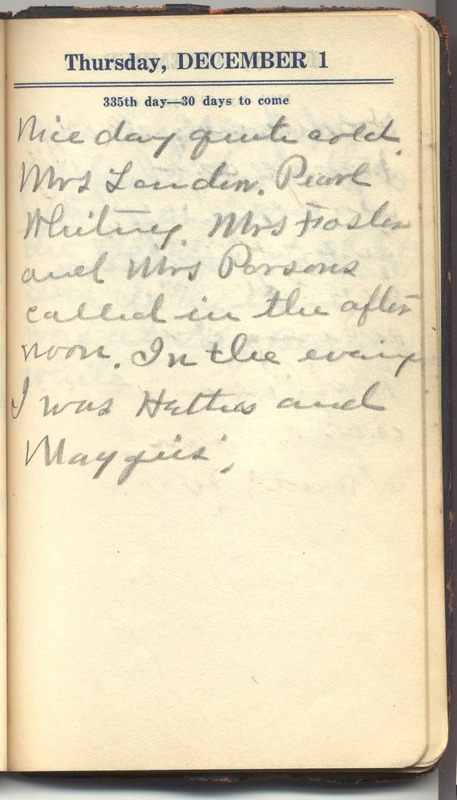 Thursday, DECEMBER 1
335th day—30 days to come
Nice day quite cold.
Mrs Landin. Pearl
Whitney. Mrs Foster
and Mrs Parsons
called in the after
noon. In the evening
I was Hatties and